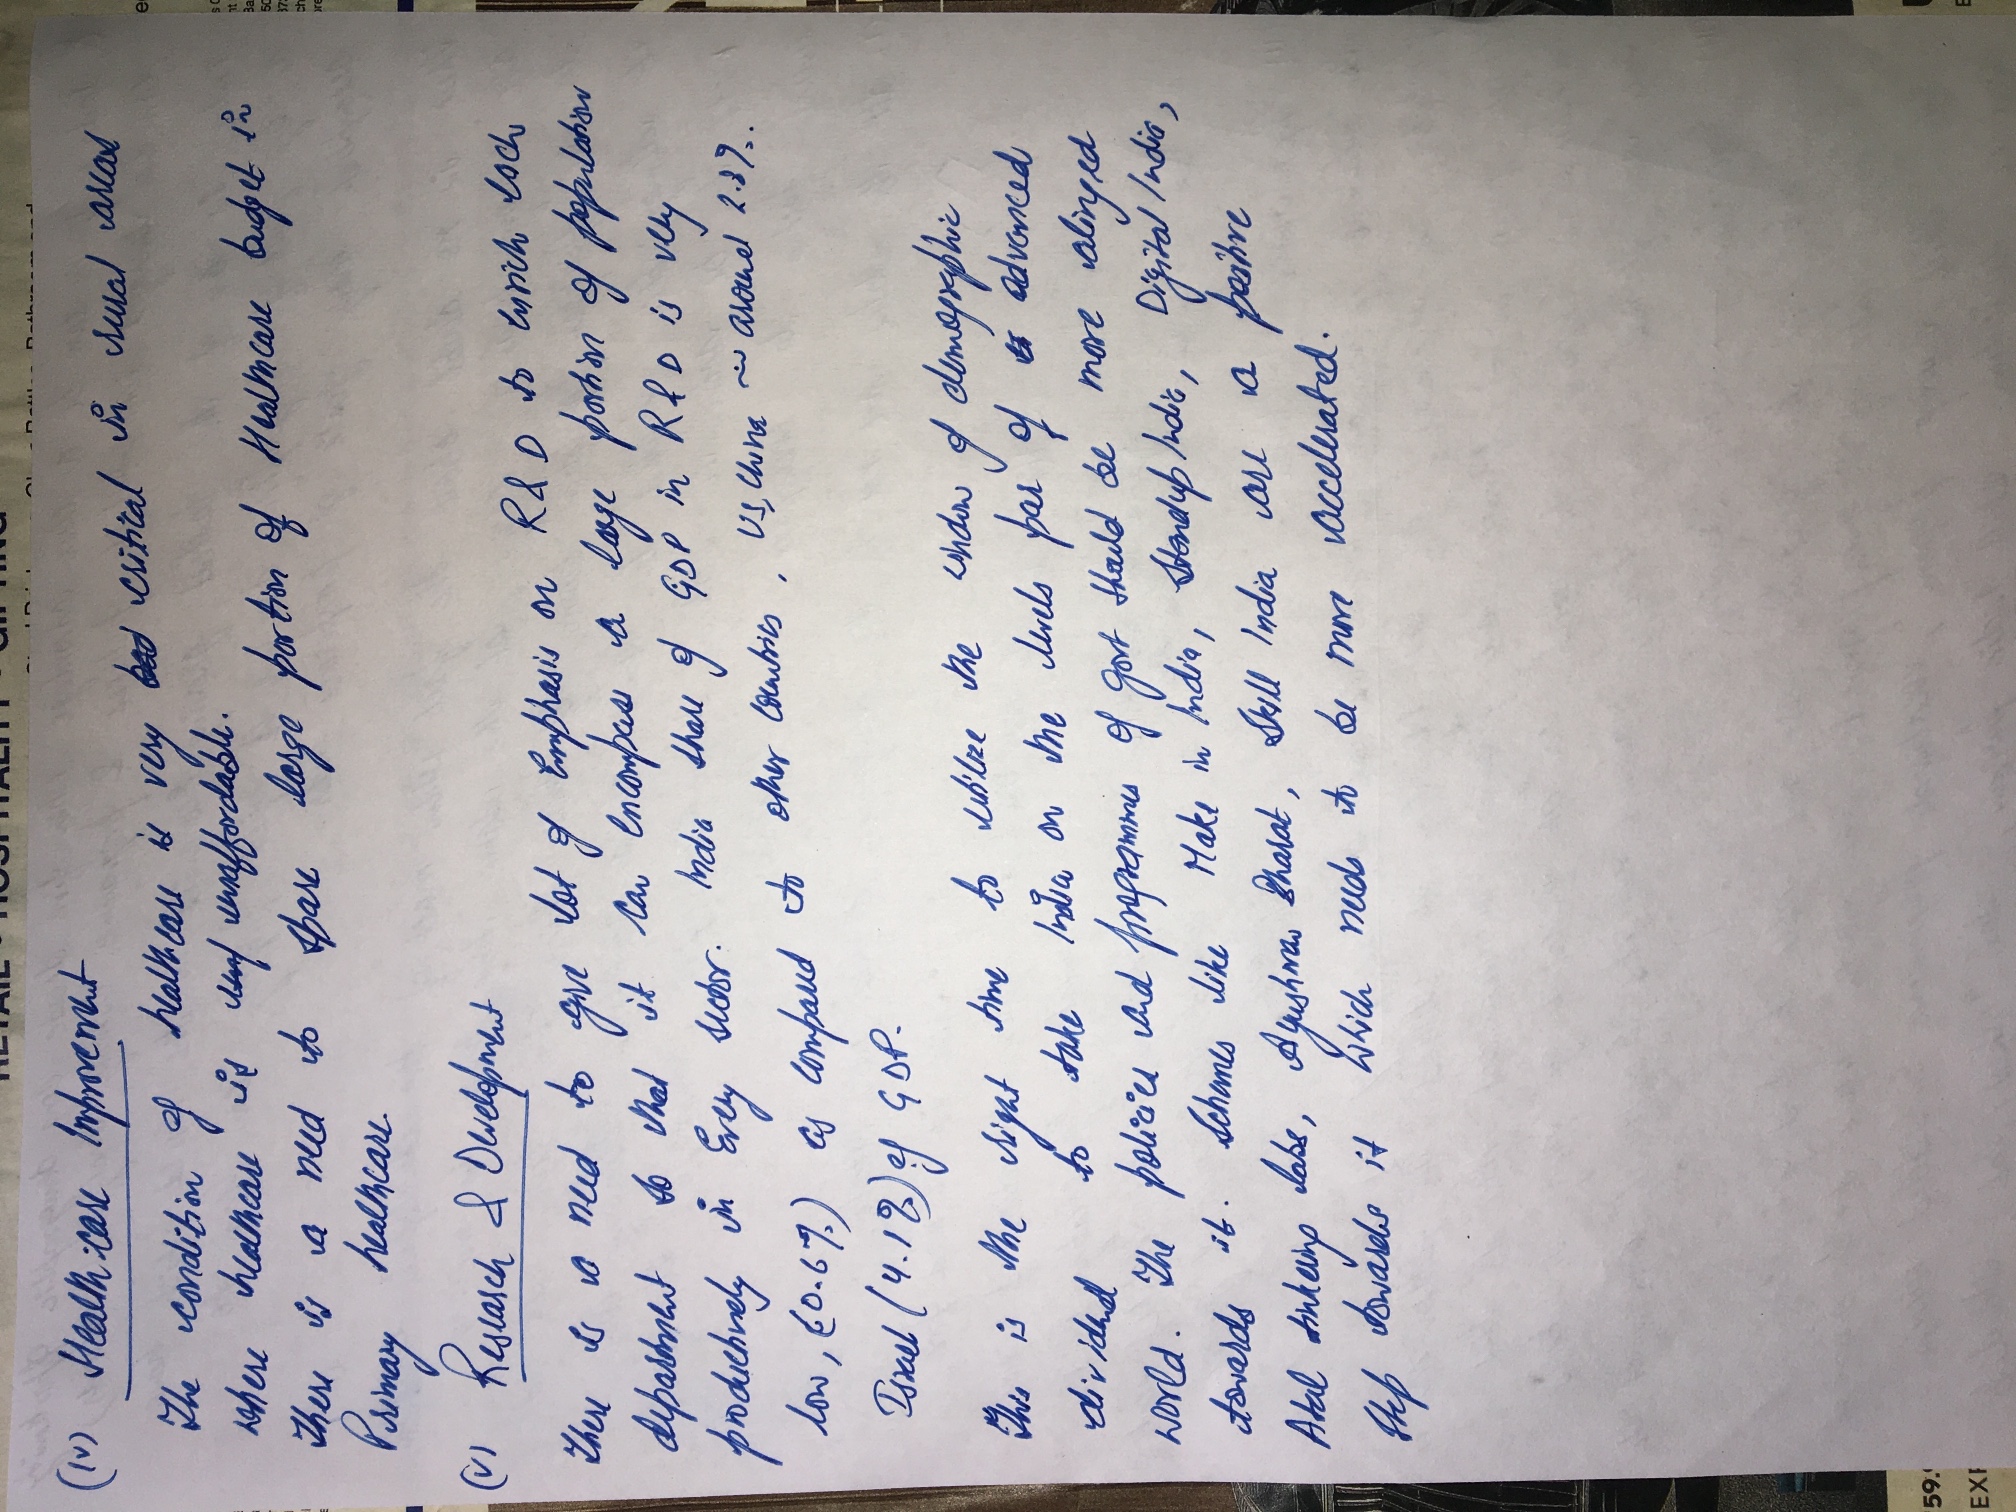 (iv) Healthcare Improvement
The condition of healthcare is very critical in rural areas
where healthcare is unaffordable.
There is a need to spare large portion of Healthcare budget in
Primary healthcare.
(v) Research & Development
There is a need to give lot of Emphasis on R&D to enrich each
department so that it can encompass a large portion of population
productively in Every sector. India share of GDP in R&D is very
low, (0.6%) as compared to other countries, US, China ~ around 2.8%.
Israel (4.1%) of GDP.
This is the right time to utilize the window of demographic
dividend to take India on the levels par of advanced
world. The policies and programmes of govt should be more alinged
towards it. Schemes like Make in India, Standup India, Digital India,
Atal tinkering labs, Ayushman Bharat, Skill India are a positive
Step towards it which needs to be more accelerated.
RETAIL
HOSPITALITY
59.
EX